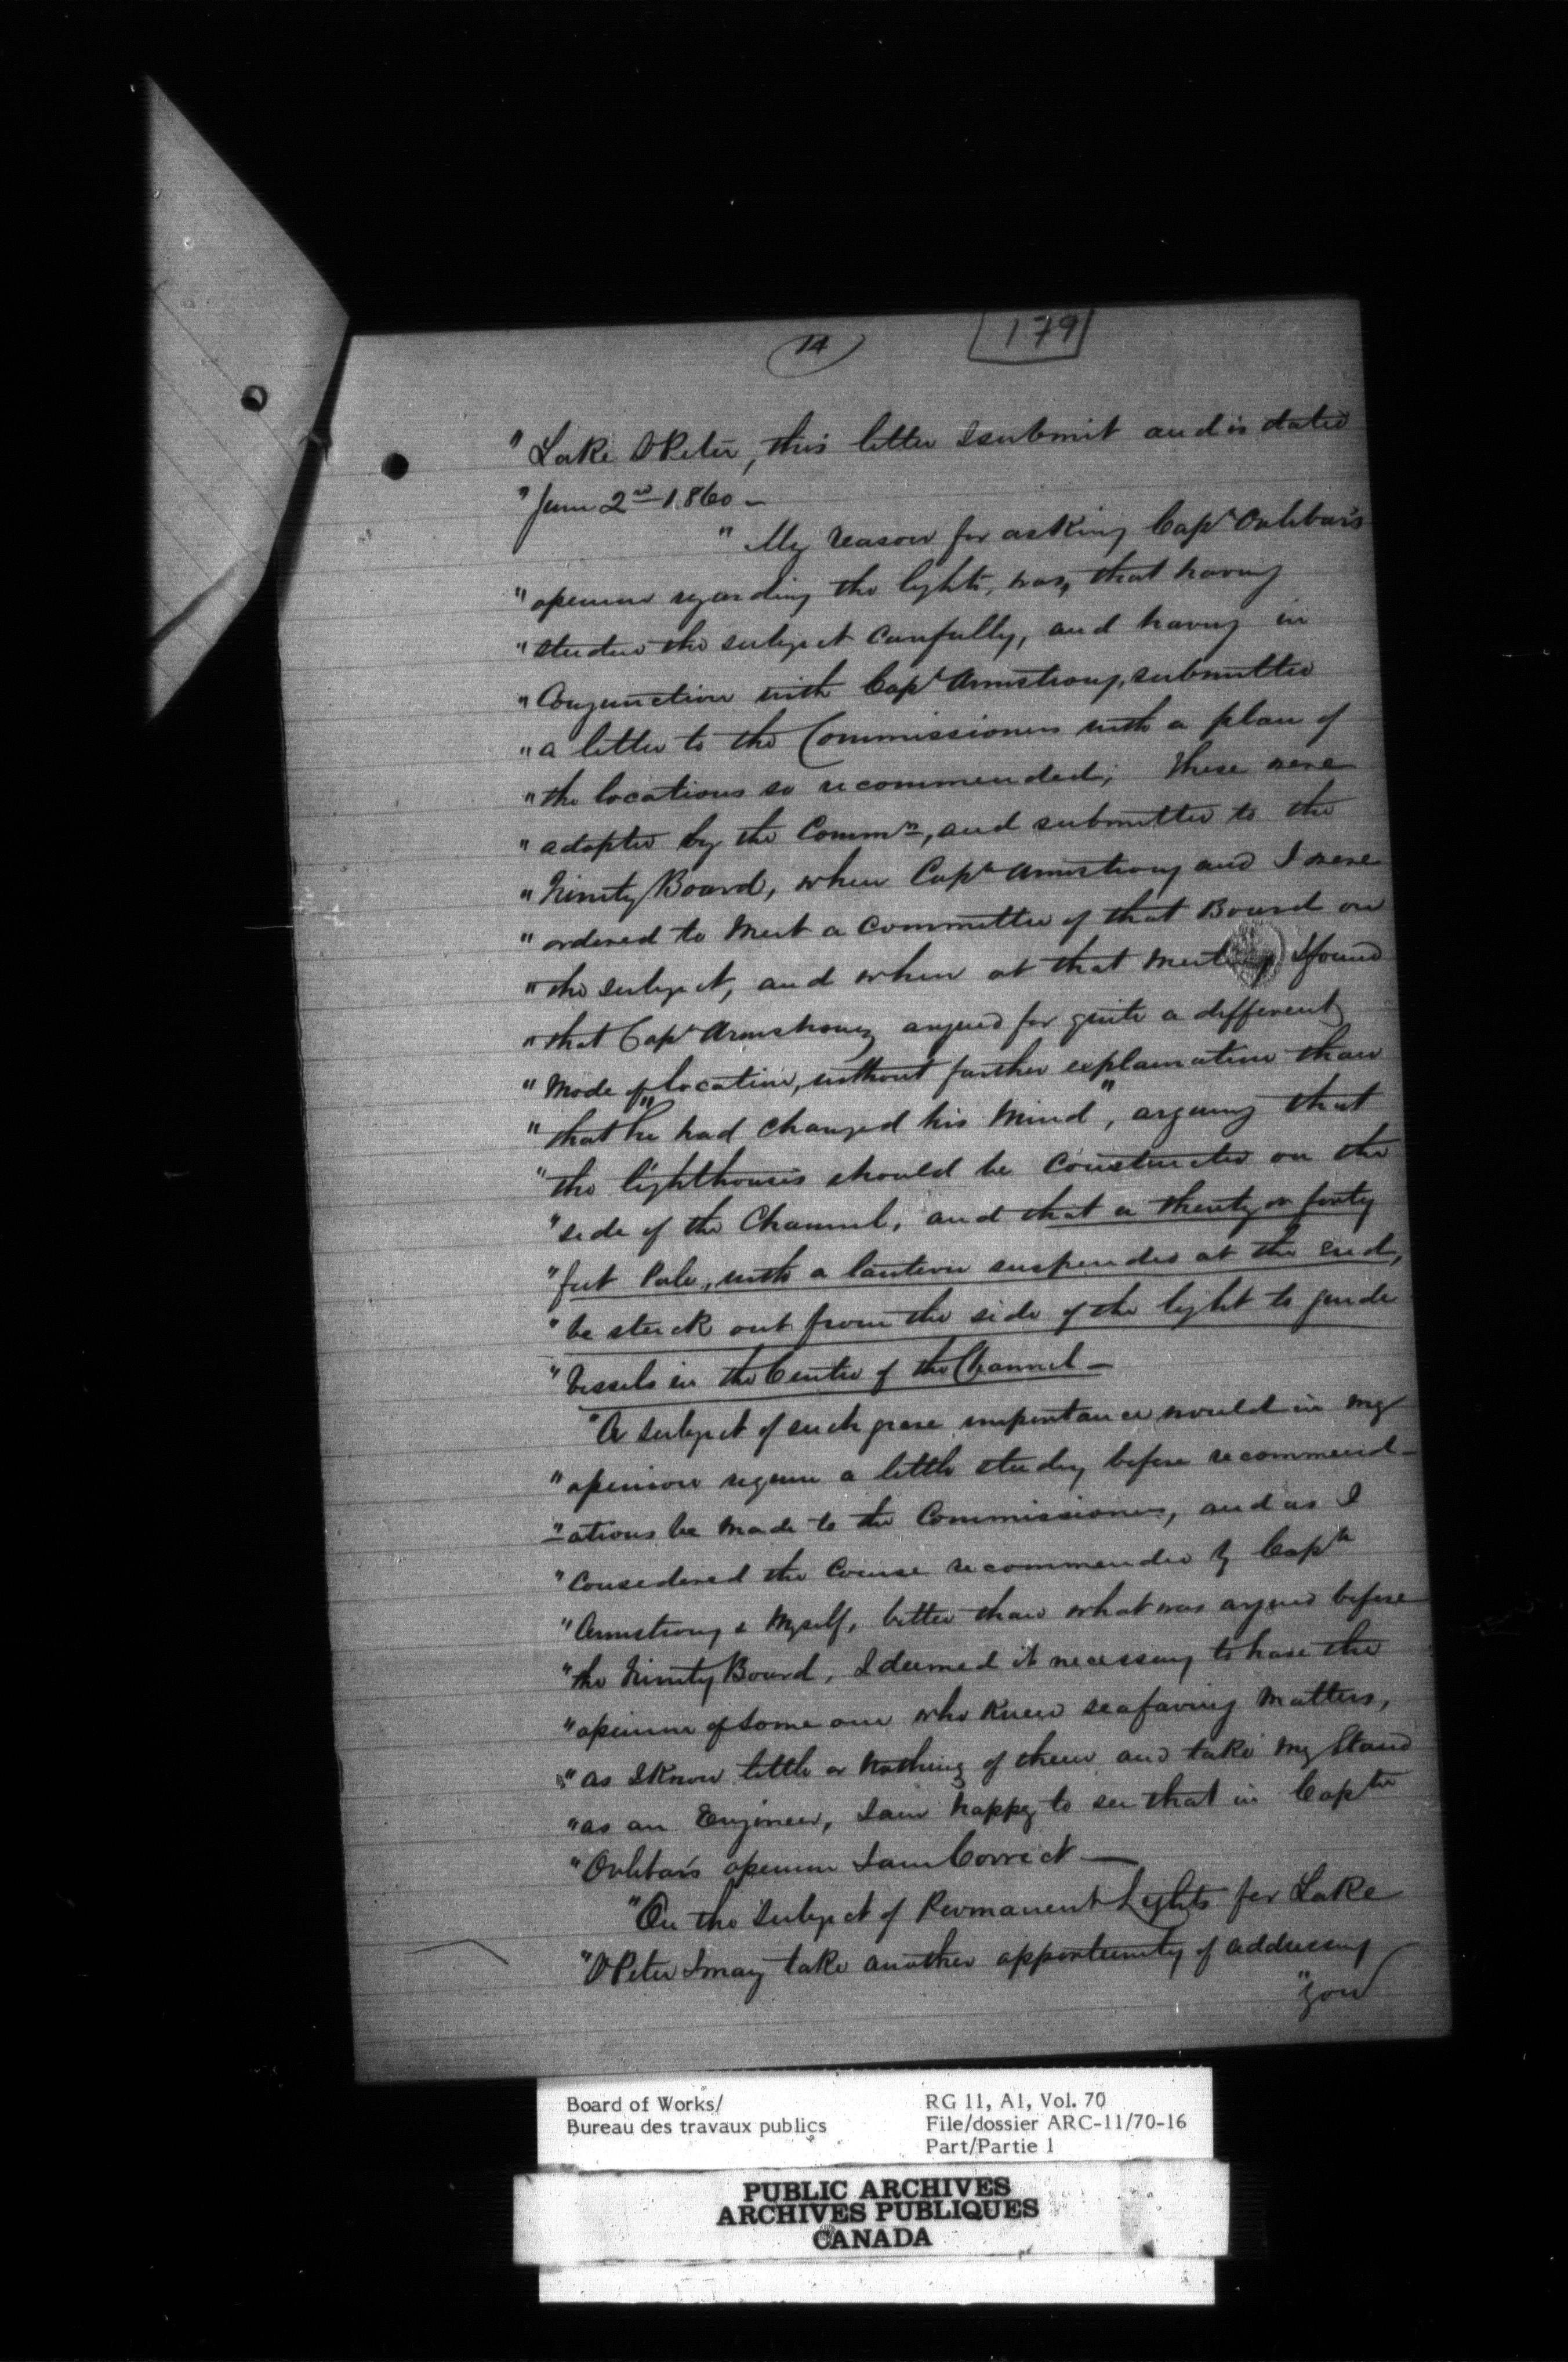 14
179
" Lake St Peter, this letter I submit and is dated
" June 2nd 1860 –
" My reason for asking Capt Orlebar's
" opinion regarding the lights, was, that having
" studied the subject carefully, and having in
" Conjunction with Capt Armstrong, submitted
" a letter to the Commissioners with a plan of
" the locations so recommended; these were
" adopted by the Commrs, and submitted to the
" Trinity Board, when Captn Armstrong and I were
" ordered to meet a Committee of that Board on
" the subject, and when at that meeting I found
" that Capt Armstrong argued for quite a different
" mode of location, without further explanation than
" that "he had changed his mind", arguing that
" the lighthouses should be constructed on the
" side of the Channel, and that a thirty or forty
" feet Pole, with a lantern suspended at the end,
" be stuck out from the side of the light to guide
" Vessels in the Centre of the Channel –
" A subject of such grave importance would in my
" opinion require a little study before recommend-
" -ations be made to the Commissioners, and as I
" considered the course recommended by Captn
" Armstrong & myself, better than what was argued before
" the Trinity Board, I deemed it necessary to have the
" opinion of some one who knew seafaring matters,
" as I know little or nothing of them and take my stand
" as an Engineer, I am happy to see that in Captn
" Orlebar's opinion I am Correct –
" On the subject of Permanent Lights for Lake
" St Peter I may take another opportunity of addressing
" you
Board of Works/
Bureau des travaux publics
RG 11, A1, Vol. 70
File/dossier ARC-11/70-16
Part/Partie 1
PUBLIC ARCHIVES
ARCHIVES PUBLIQUES
CANADA